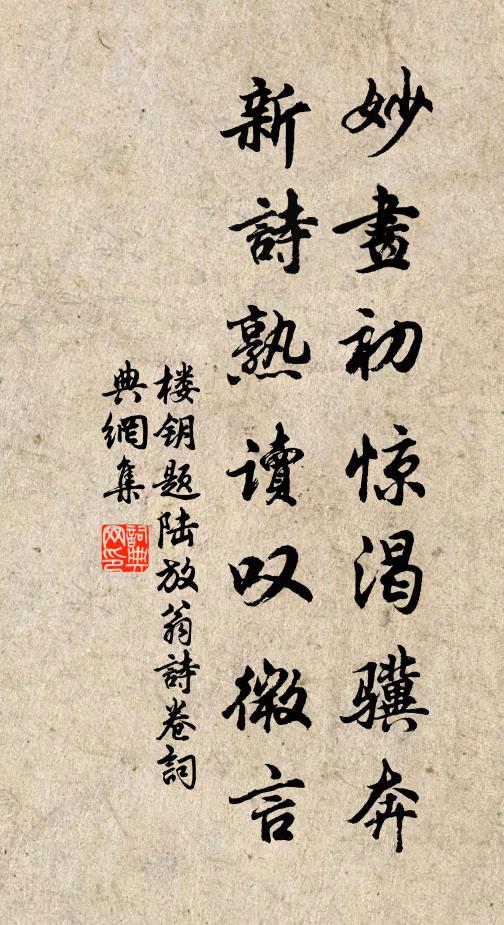 妙畫初惊渴骥奔
新詩熟读叹微言
楼钥题陆放翁詩卷詞
典網集
詞典
网印